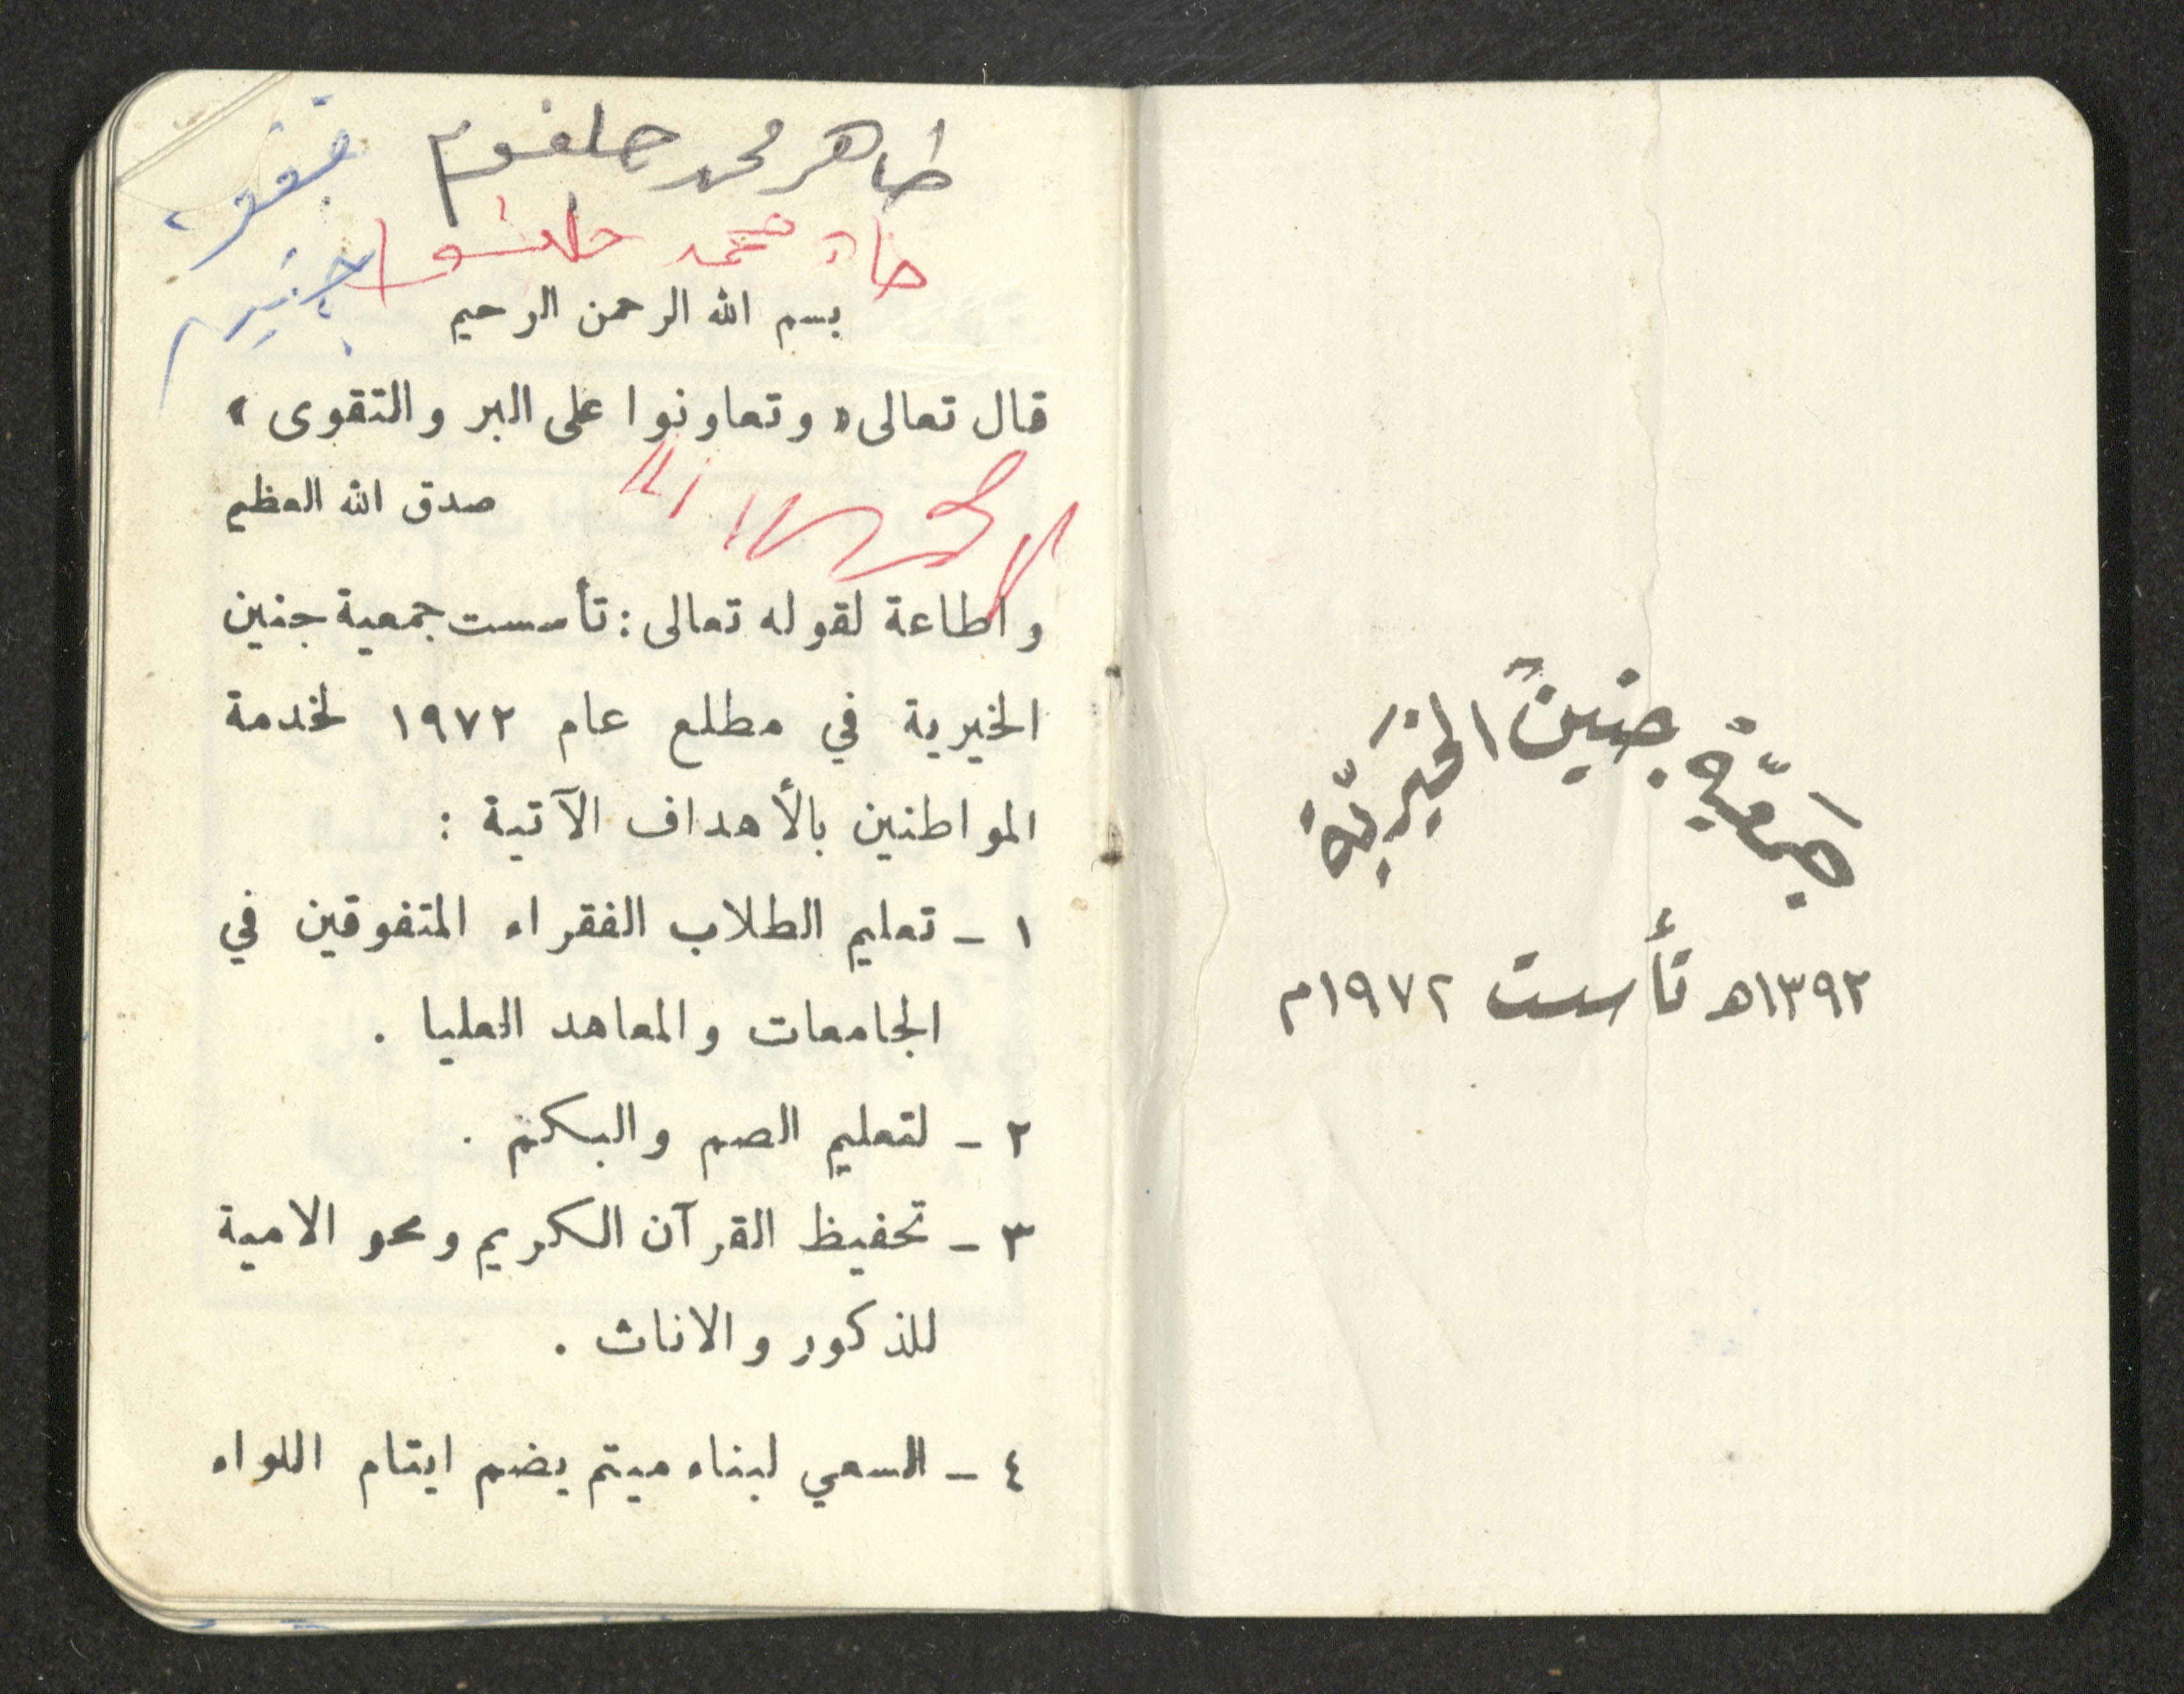 جمعية جنين الخيرية
١٣٩٢هـ تأسست ١٩٧٢م
طاهر محمد
بسم الله الرحمن الرحيم
قال تعالى « وتعاونوا على البر والتقوى »
صدق الله العظيم
واطاعة لقوله تعالى : تأسست جمعية جنين
الخيرية في مطلع عام ١٩٧٢ لخدمة
المواطنين بالأهداف الآتية :
١ - تعليم الطلاب الفقراء المتفوقين في
الجامعات والمعاهد العليا .
٢ - لتعليم الصم والبكم .
٣ - تحفيظ القرآن الكريم ومحو الامية
للذكور والاناث .
٤ - السعي لبناء ميتم يضم ايتام اللواء